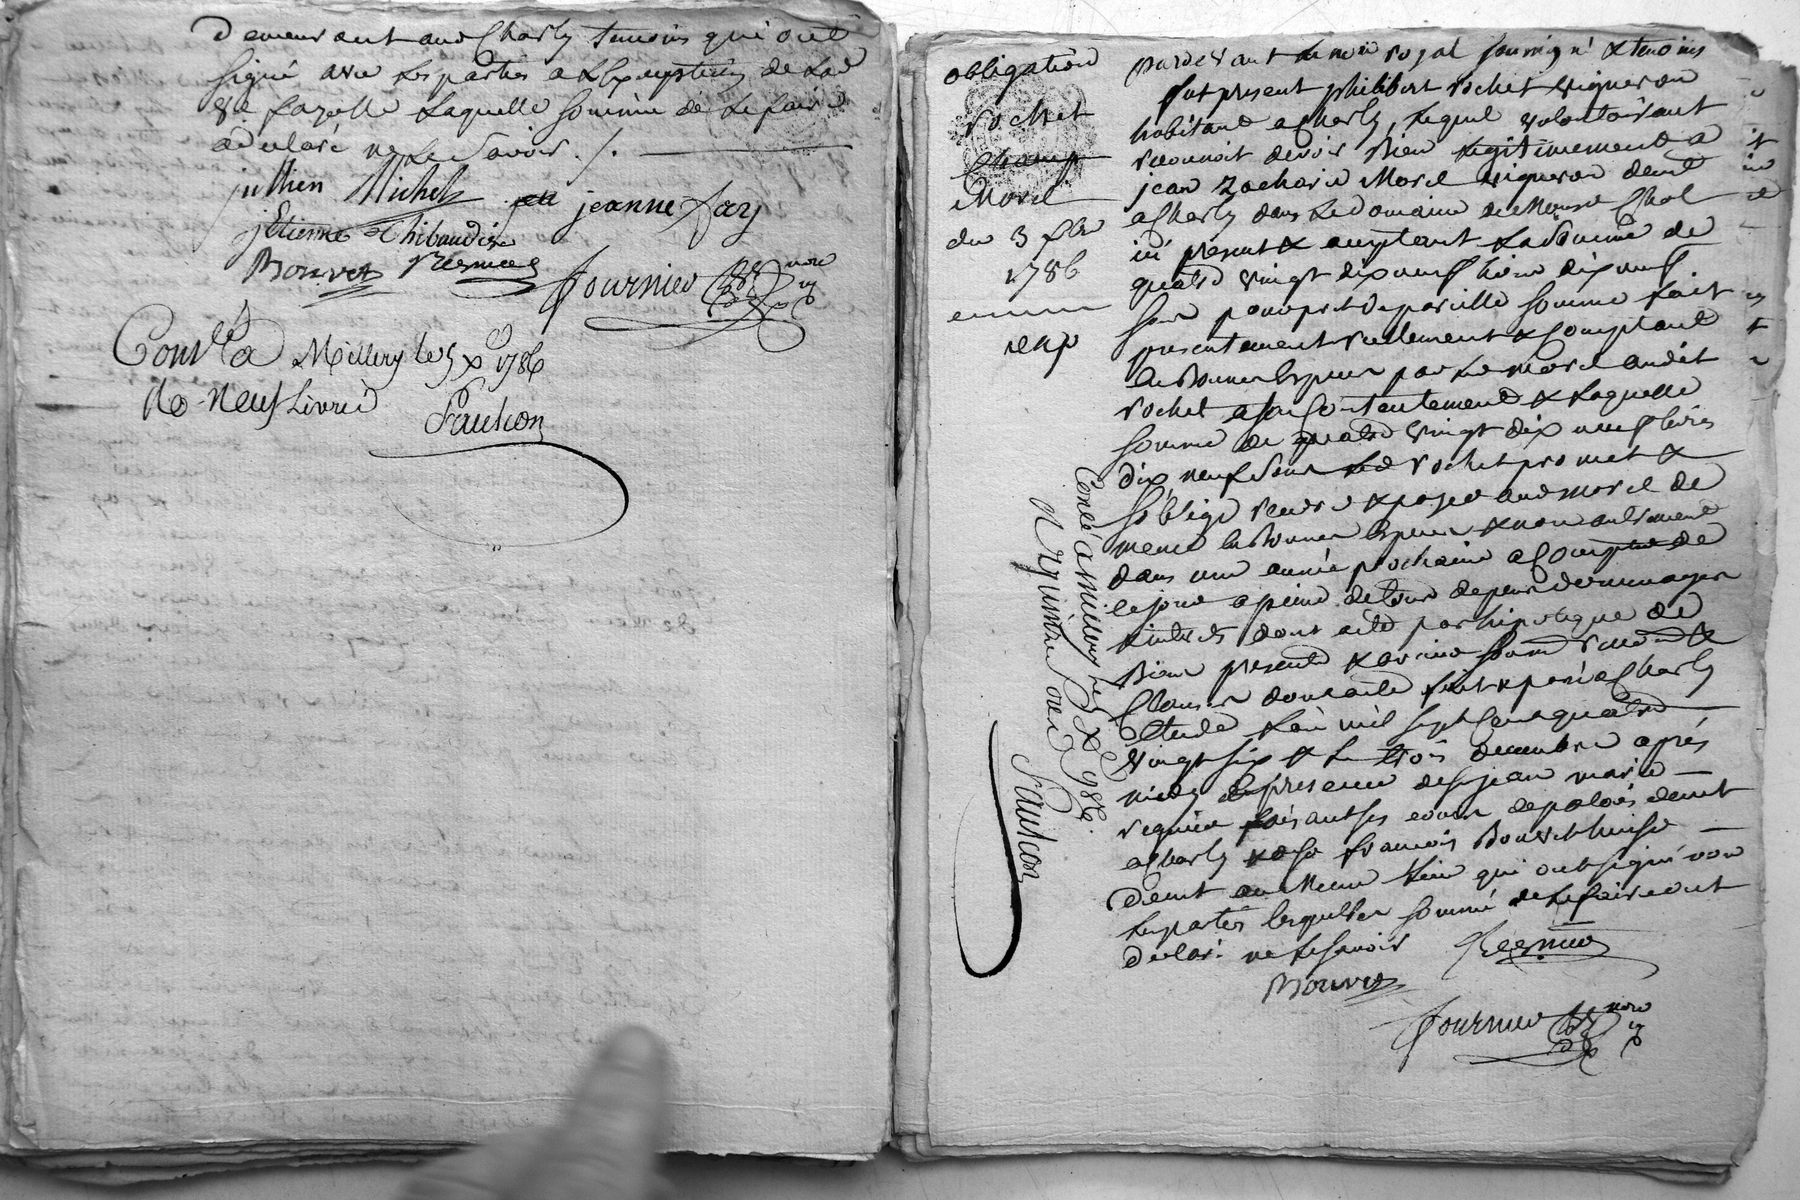 Demeurant aud Charly temoins qui ont
signé avec les parties a l'exception de lad
ve fazelle laquelle sommée de le faire a
déclaré ne le savoir ./.
jullien Michel jeanne fazy
jEtienne Thibaudier
Bouvet Regnier
fournier nore
Conlé a Millery le 5 xbre 1786
Ro neuf Livres
Faulcon
obligation
rochet
Morel
du 3 xbre
1786
exp
pardevant le nore royal soussigné & temoins
fut present philibert rochet vigneron
habitant a Charly, lequel volontairement
reconnoit devoir bien legitimement a
jean Zacharie Morel vigneron demt
a Charly dans le domaine de Monsr Chol
ici present & acceptant la somme de
quatre vingt dix neuf livres dix neuf
sous pour pret de pareille somme fait
presentement reellement & comptant
en bonnes especes par led morel audit
rochet a son Contentement & laquelle
somme de quatre vingt dix neuf livres
dix neuf sous led rochet promet &
s'oblige rendre & payer aud morel de
meme en bonnes especes & non autrement
dans une année prochaine a Compter de
ce jour a peine de tous depens dommages
interets dont acte par hipoteque de
biens presents & avenir soumis renond &
Clauses dont acte fait & passé a Charly
Etude l'an mil sept Cent quatre
vingt six & le trois decembre après
midy en presence de sr jean marie
regnier faisant ses cours de palais demt
a Charly & de sr francois Bouvet huissier
demt au meme lieu qui ont signé non
les parties lesquelles sommé de le faire ont
declaré ne le savoir Regnier
Bouvet
fournier nore
Conlé a Millery le 5 xbre 1786.
R quinze sous
Faulcon